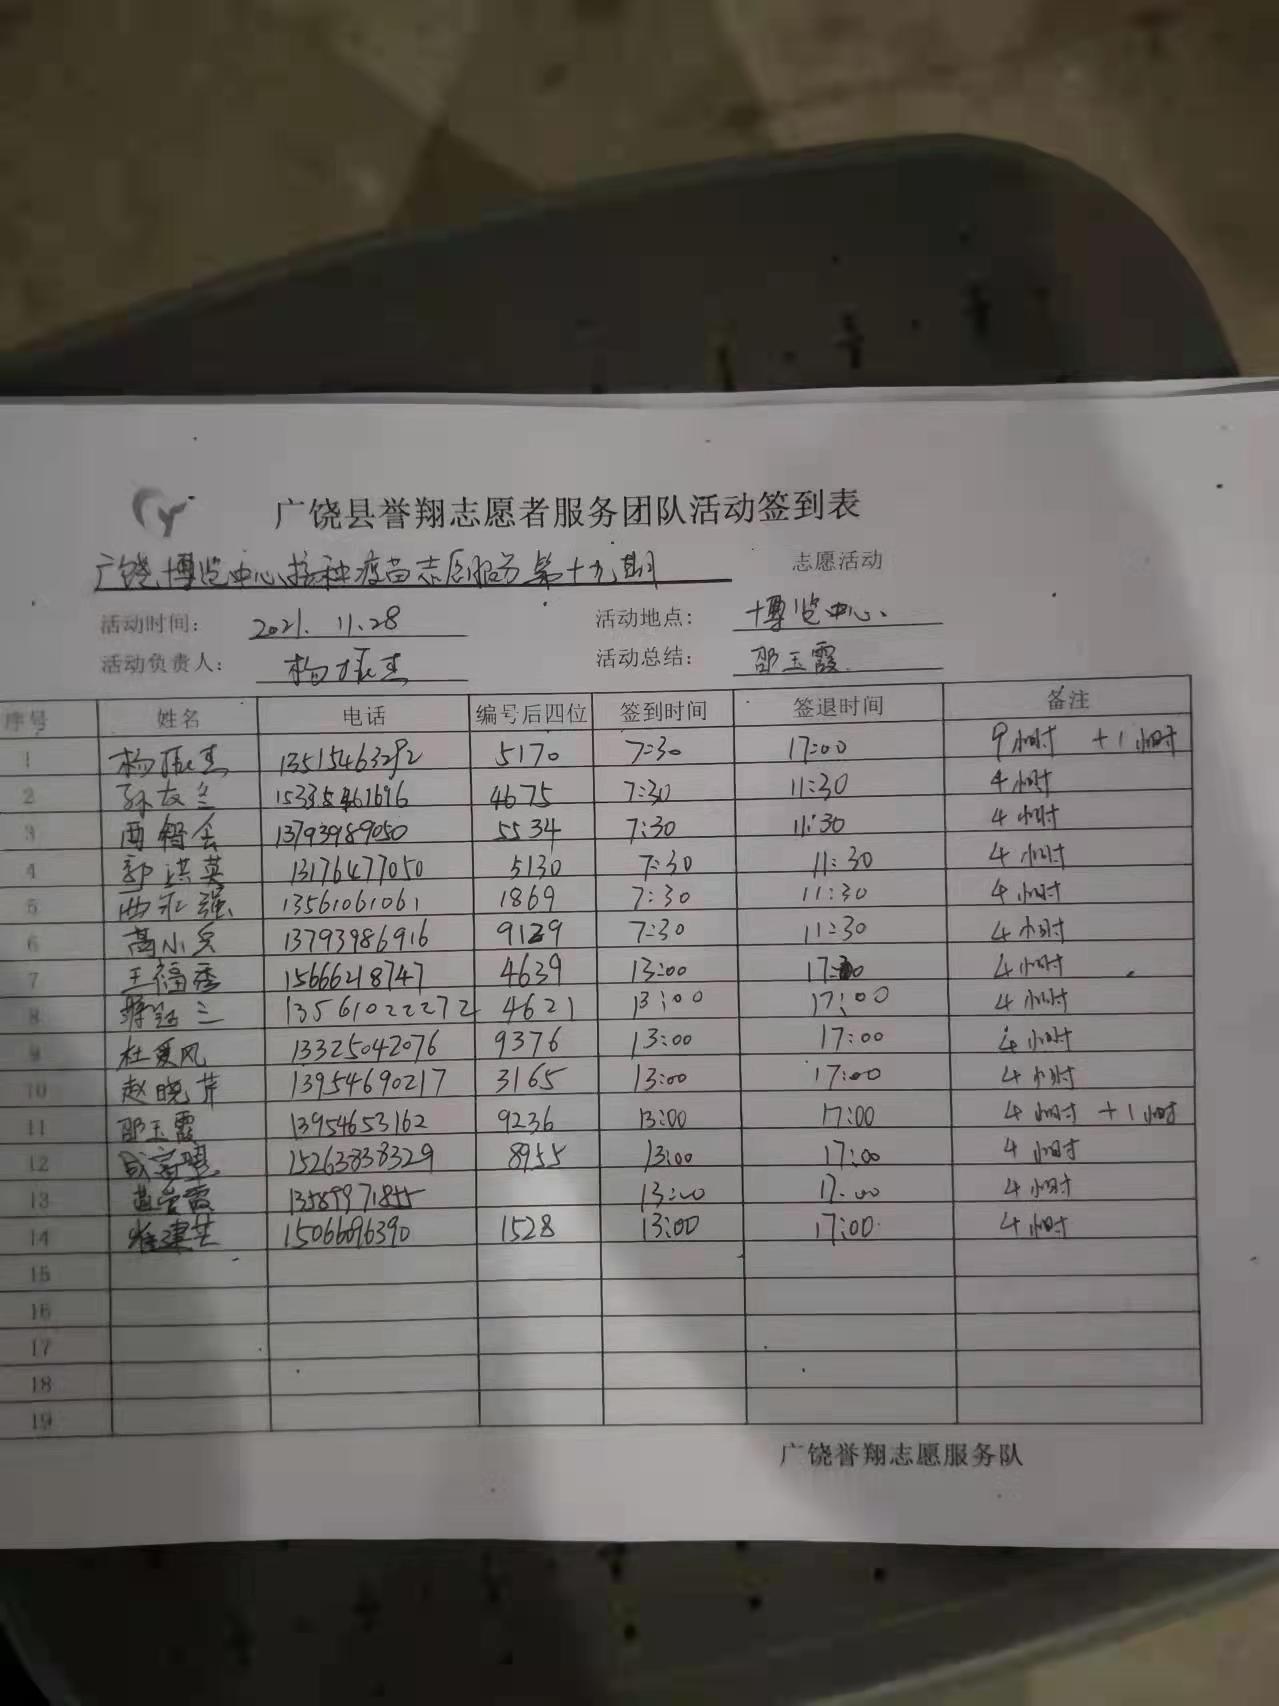 广饶县誉翔志愿者服务团队活动签到表
广饶博览中心接种疫苗志愿服务第十九期 志愿活动
活动时间: 2021.11.28 活动地点: 博览中心、
活动负责人: 杨振杰 活动总结: 邵玉霞
序号 姓名 电话 编号后四位 签到时间 签退时间 备注
1 杨振杰 13515463292 5170 7:30 17:00 9小时 +1小时
2 孙友兰 15335461696 4675 7:30 11:30 4小时
3 13793989050 5534 7:30 11:30 4小时
4 郭洪英 13176477050 5130 7:30 11:30 4小时
5 13561061061 1869 7:30 11:30 4小时
6 高小兵 13793986916 9129 7:30 11:30 4小时
7 王福香 15666218747 4639 13:00 4小时
8 13561022272 4621 13:00 17:00 4小时
9 杜爱风 13325042076 9376 13:00 17:00 4小时
10 赵晓芹 13954690217 3165 13:00 17:00 4小时
11 邵玉霞 13954653162 9236 13:00 17:00 4小时 +1小时
12 15263838329 8955 13:00 17:00 4小时
13 13589971855 13:00 17:00 4小时
14 15066696390 1528 13:00 17:00 4小时
15
16
17
18
19
广饶誉翔志愿服务队